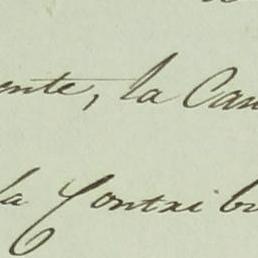 ente, la Can
la Contri bu